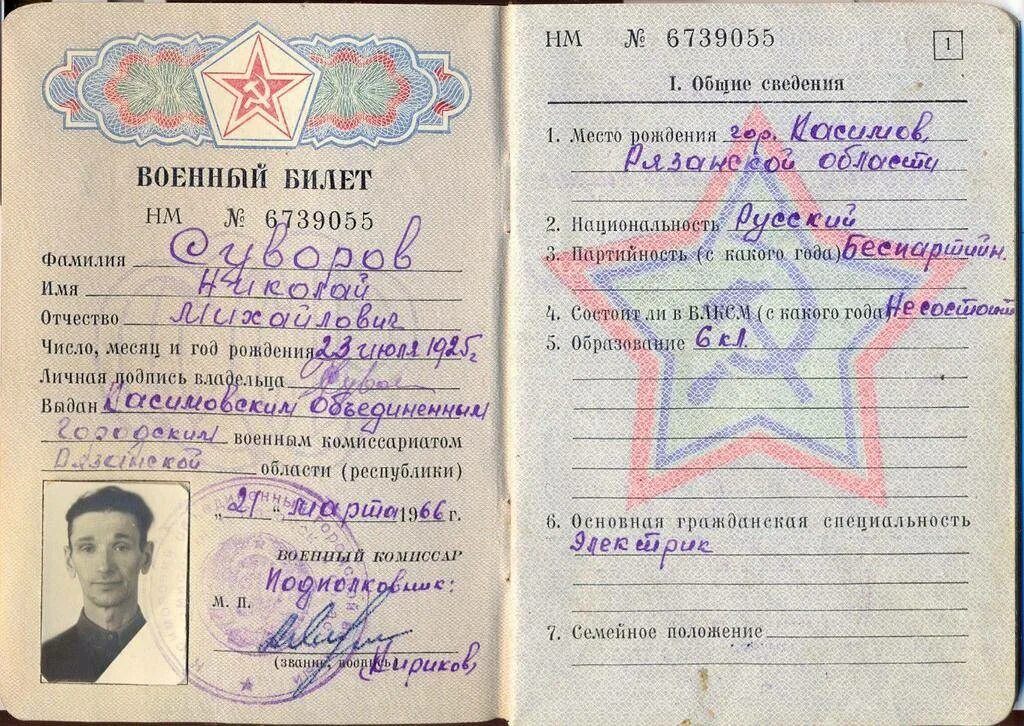 ВОЕННЫЙ БИЛЕТ
НМ № 6739055
Фамилия Суворов
Имя Николай
Отчество Михайлович
Число, месяц и год рождения 23 июля 1925г
Личная подпись владельца
Выдан Касимовским Объединенным
Городским военным комиссариатом
Рязанской области (республики)
„21" марта 1966 г.
ВОЕННЫЙ КОМИССАР
Подполковник:
М. П.
(звание, подпись) (Кириков)
НМ № 6739055
1
I. Общие сведения
1. Место рождения гор. Касимов,
Рязанской области
2. Национальность Русский
3. Партийность (с какого года) Беспартийн.
4. Состоит ли в ВЛКСМ (с какого года) Не состоит
5. Образование 6 кл.
6. Основная гражданская специальность
Электрик
7. Семейное положение